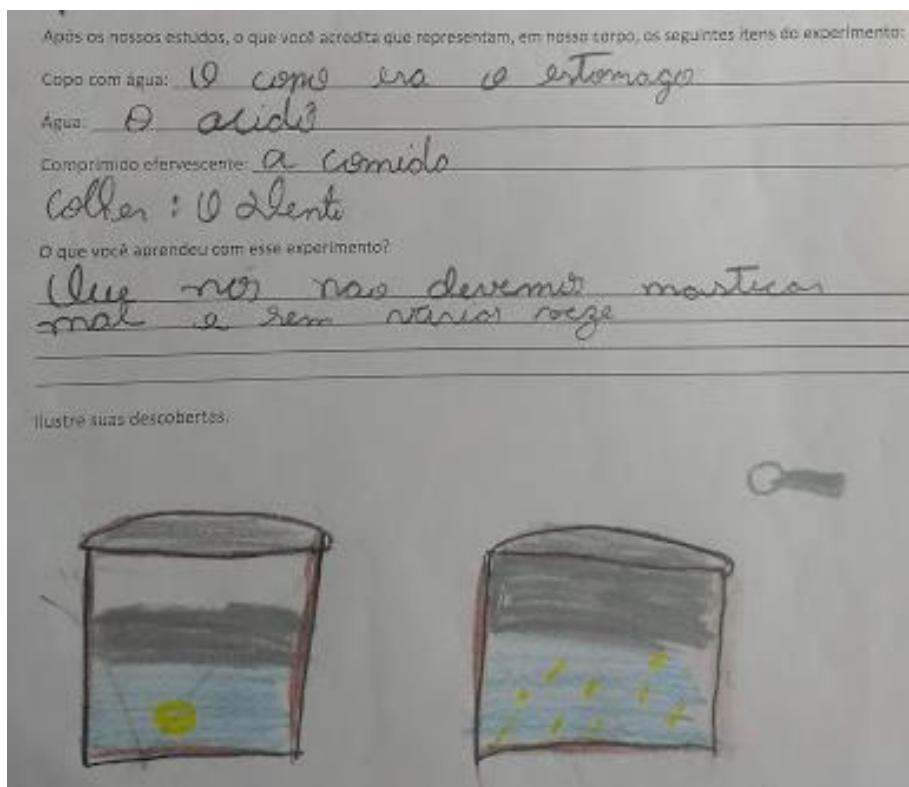 Após os nossos estudos, o que você acredita que representam, em nosso corpo, os seguintes itens do experimento:
Copo com água: O copo era o estomago
Água: O acido
Comprimido efervescente: a comida
Colher: O dente
O que você aprendeu com esse experimento?
Que nós nao devemos masticar
mal e sem varias veze
Ilustre suas descobertas.